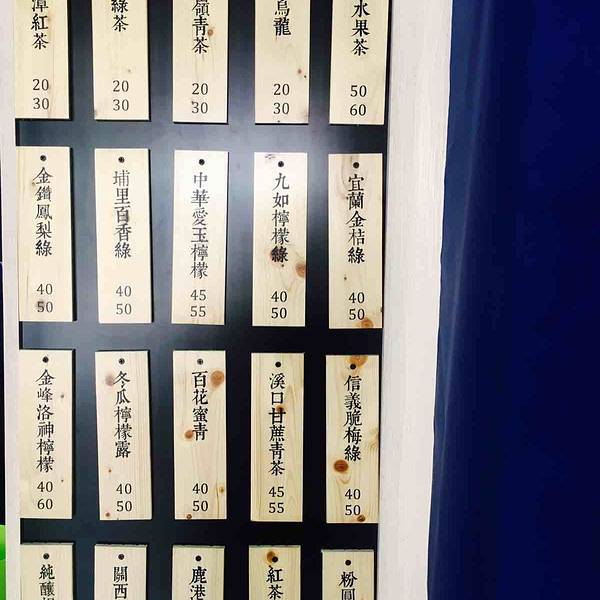 水果茶
50
60
烏龍
20
30
嶺青茶
20
30
綠茶
20
30
潭紅茶
20
30
宜蘭金桔綠
40
50
九如檸檬綠
40
50
中華愛玉檸檬
45
55
埔里百香綠
40
50
金鑽鳳梨綠
40
50
信義脆梅綠
40
50
溪口甘蔗青茶
45
55
百花蜜青
40
50
冬瓜檸檬露
40
50
金峰洛神檸檬
40
60
粉圓
紅茶
鹿港
關西
純釀